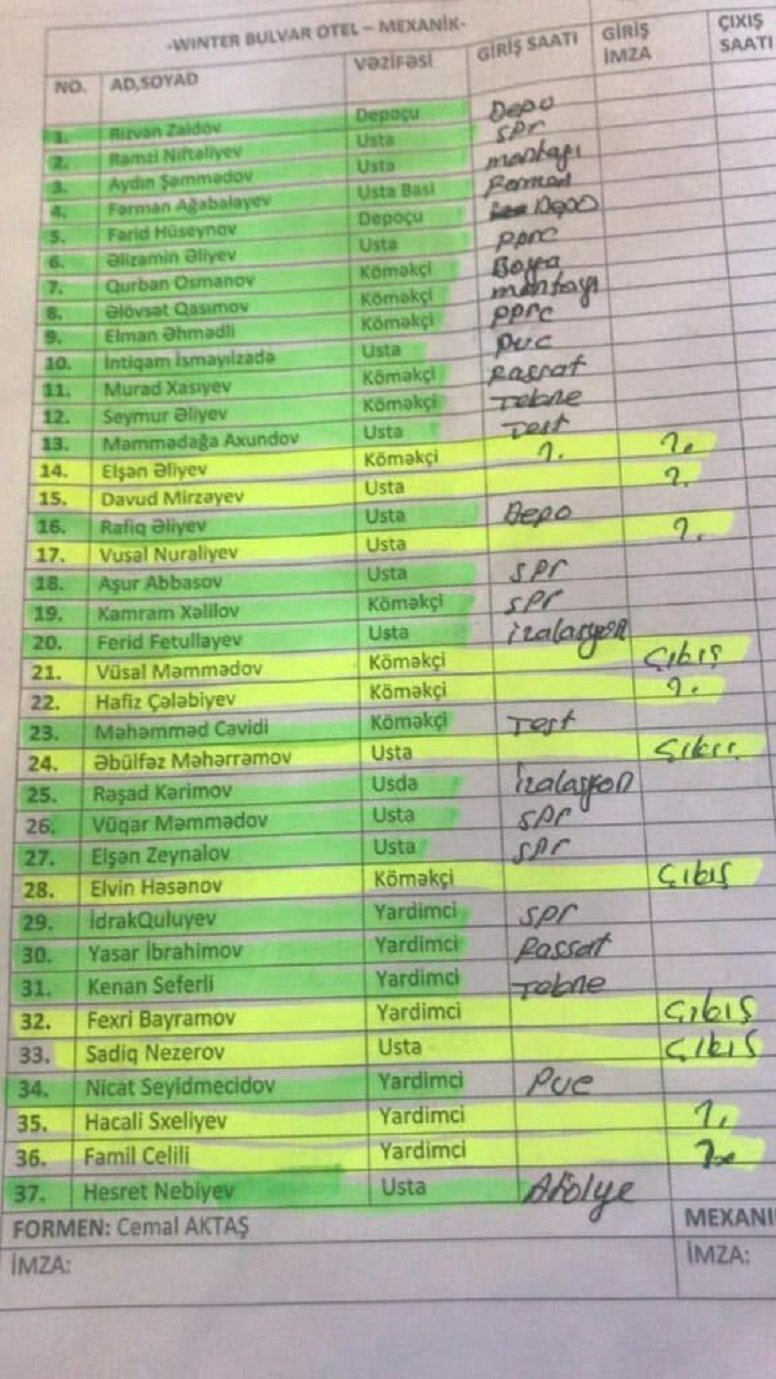 -WINTER BULVAR OTEL – MEXANİK-
NO. AD,SOYAD VƏZİFƏSİ GİRİŞ SAATI GİRİŞ İMZA ÇIXIŞ SAATI
1. Rizvan Zaidov Depoçu Depo
2. Ramzi Niftaliyev Usta SPr
3. Aydın Şəmmədov Usta montajı
4. Fərman Ağabalayev Usta Basi
5. Fərid Hüseynov Depoçu Depo
6. Əlizamin Əliyev Usta PPrc
7. Qurban Osmanov Köməkçi Boya
8. Əlövsət Qasımov Köməkçi montajı
9. Elman Əhmədli Köməkçi PPrc
10. İntiqam İsmayılzadə Usta PVC
11. Murad Xasıyev Köməkçi Passat
12. Seymur Əliyev Köməkçi
13. Məmmədağa Axundov Usta Test
14. Elşən Əliyev Köməkçi ?. ?.
15. Davud Mirzəyev Usta ?.
16. Rafiq Əliyev Usta Depo
17. Vusal Nuraliyev Usta ?.
18. Aşur Abbasov Usta SPr
19. Kamram Xəlilov Köməkçi SPr
20. Ferid Fetullayev Usta izalasyon
21. Vüsal Məmmədov Köməkçi Çıkış
22. Hafiz Çələbiyev Köməkçi ?.
23. Məhəmməd Cavidi Köməkçi Test
24. Əbülfəz Məhərrəmov Usta Çıkış
25. Rəşad Kərimov Usda İzalasyon
26. Vüqar Məmmədov Usta SPr
27. Elşən Zeynalov Usta SPr
28. Elvin Həsənov Köməkçi Çıkış
29. İdrakQuluyev Yardimci SPr
30. Yasar İbrahimov Yardimci Passat
31. Kenan Seferli Yardimci
32. Fexri Bayramov Yardimci Çıkış
33. Sadiq Nezerov Usta Çıkış
34. Nicat Seyidmecidov Yardimci PVC
35. Hacali Sxeliyev Yardimci ?.
36. Famil Celili Yardimci ?.
37. Hesret Nebiyev Usta Atolye
FORMEN: Cemal AKTAŞ MEXANİ
İMZA: İMZA: